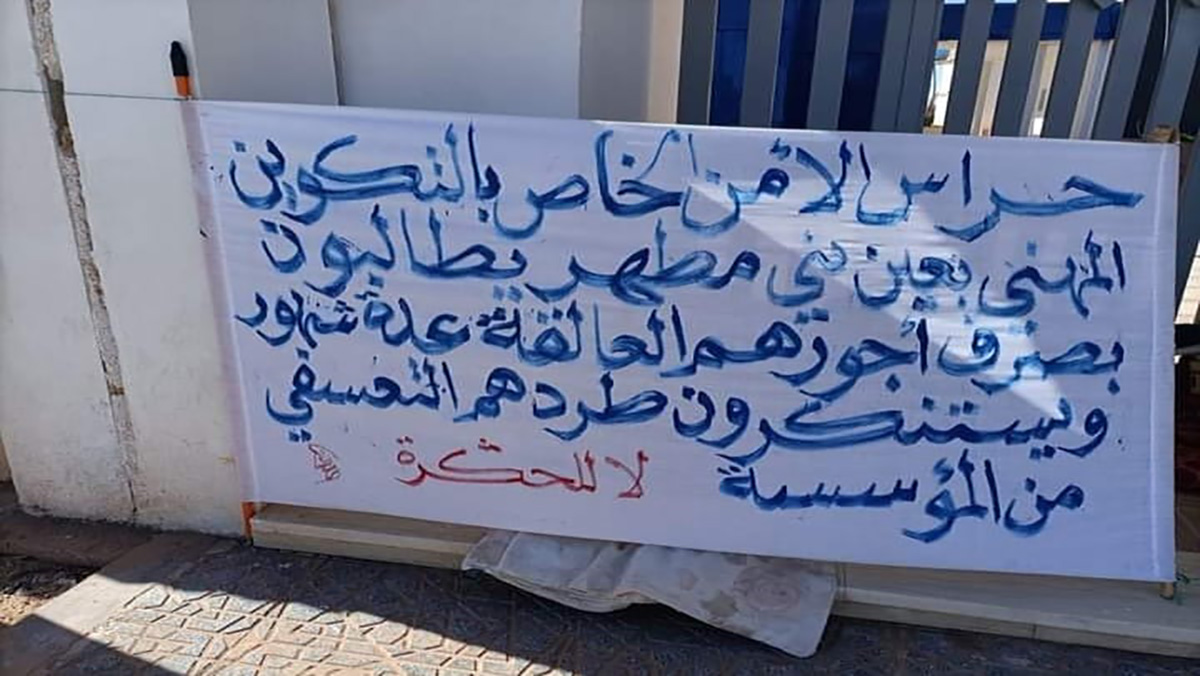 حراس الأمن الخاص بالتكوين
المهني بعين بني مطهر يطالبون
بصرف أجورهم العالقة عدة شهور
ويستنكرون طردهم التعسفي
من المؤسسة لا للحكرة